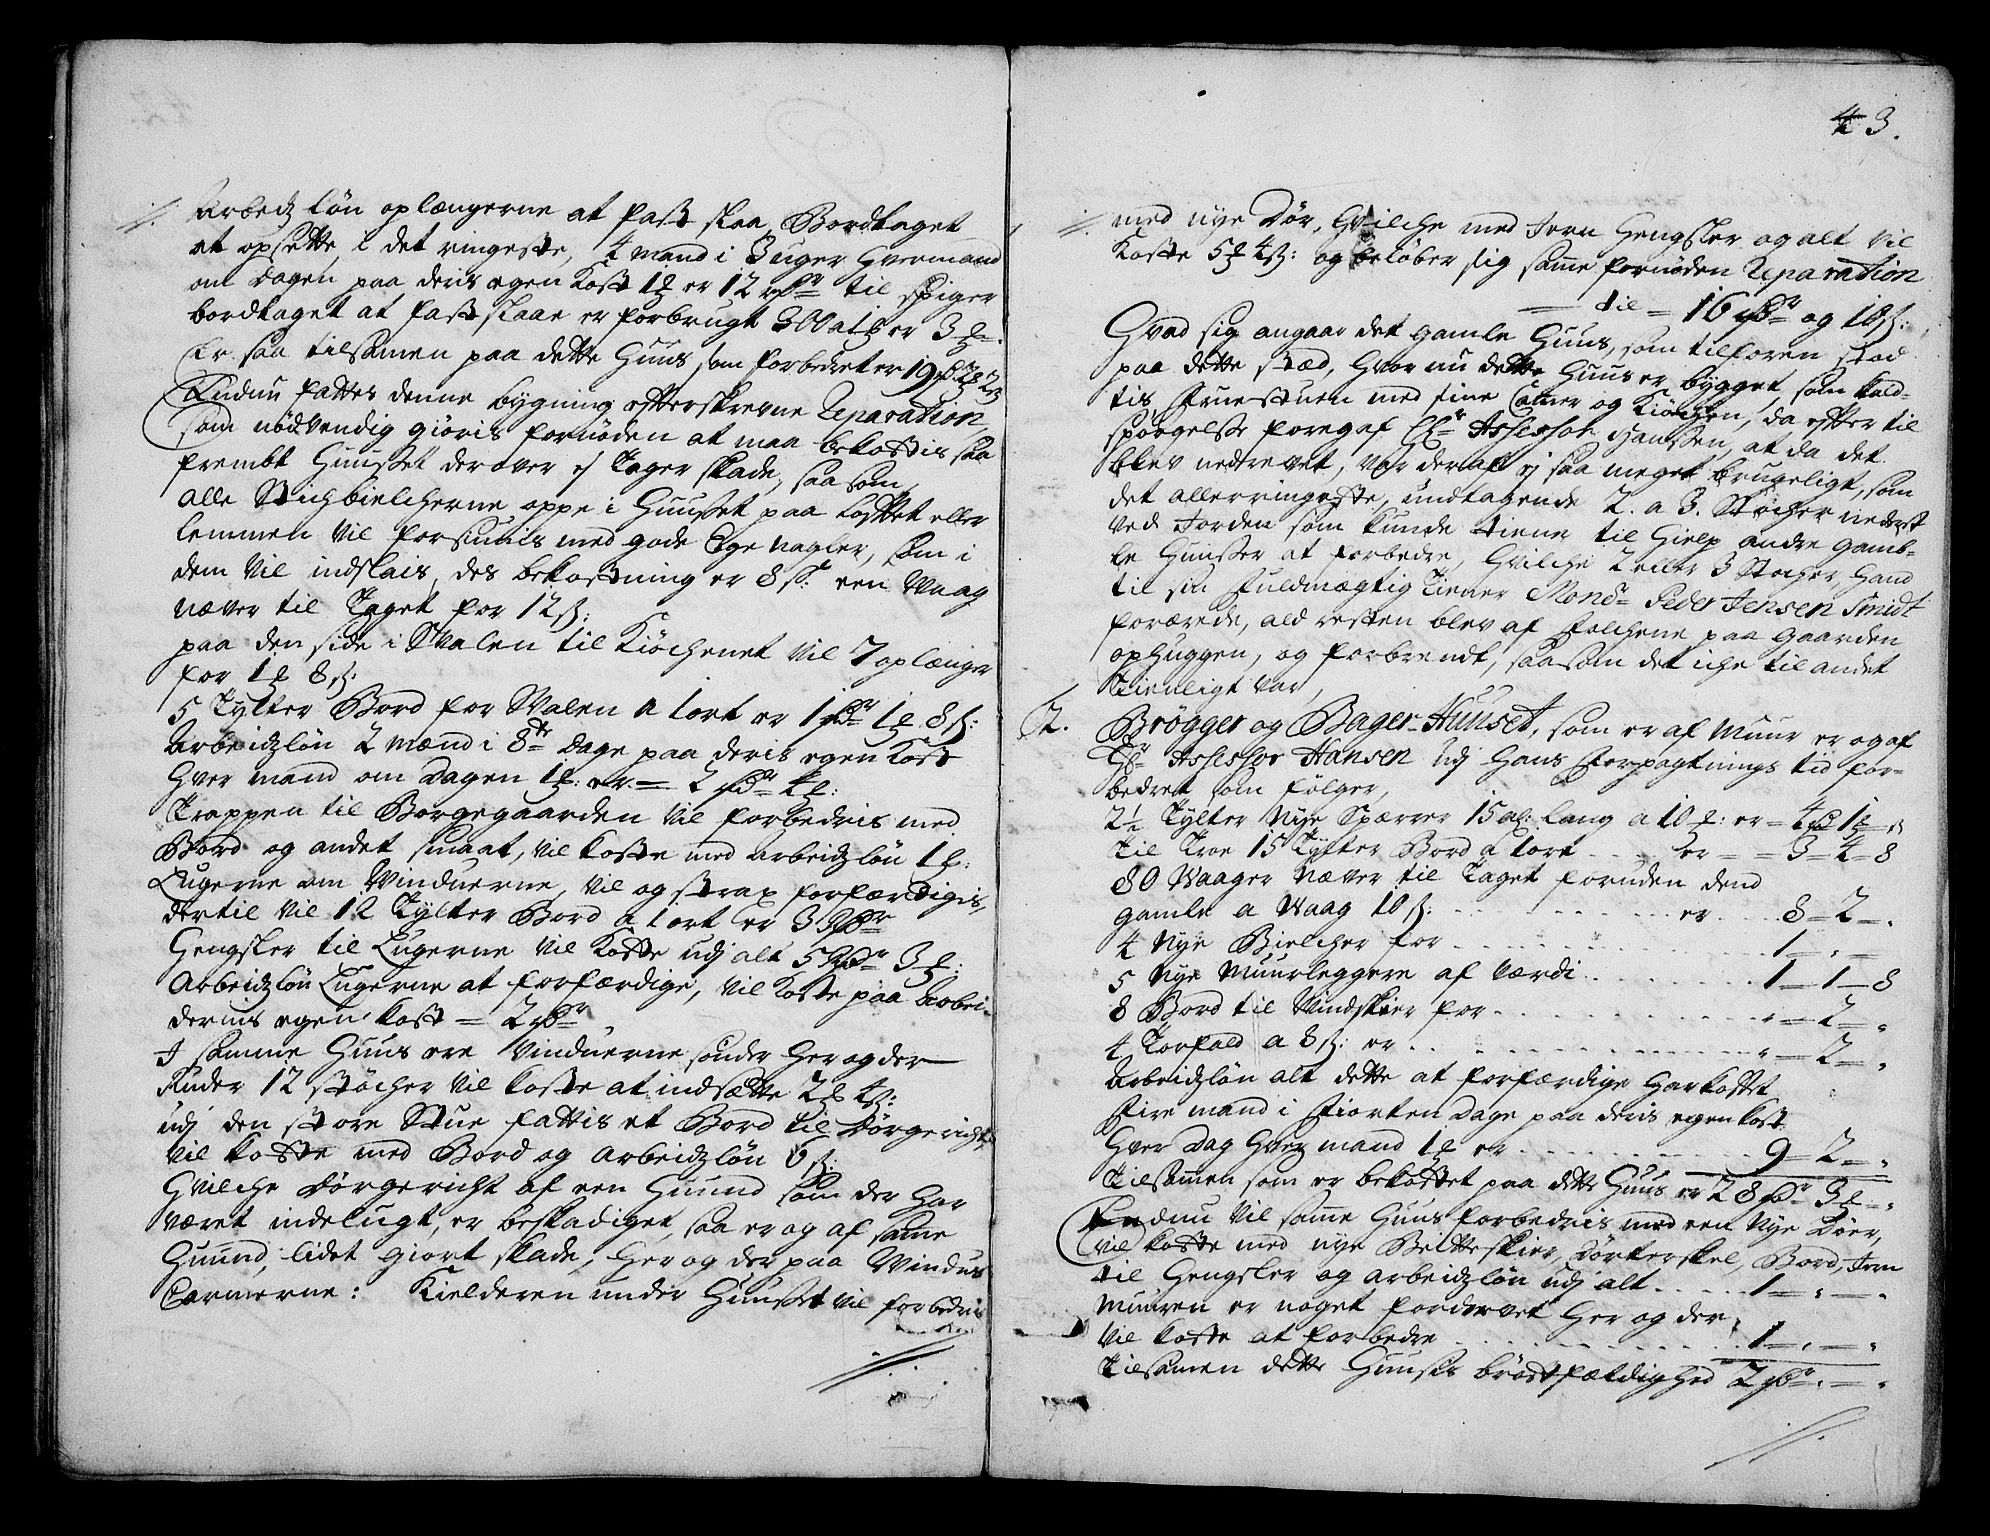 Arbeids løn oplængerne at fast slaa, Bordtaget
at opsette, i det ringeste, 4 mand i 3 uger hvermand
om dagen paa deris egen Kost 1 ℔ er 12 rdr til spiger
bordtaget at fast slaae er forbrugt 300 a 1 ℔ er 3 ℔.
Er saa tilsamen paa dette Huus som forbedret er 19 rd 2 ℔ 2 ß
Endnu fattes denne bygning efterskrevne Reparation,
som nødvendig giøris fornøden at maa bekostis saa
fremt Huuset derover ej tager skade, saasom
alle Stichbielcherne oppe i Huuset paa Loftet eller
Lemmen vil forsiunis med gode Ege nagler, som i
dem vil indslais, des bekostning er 8 ß: een Waag
Næver til Taget for 12 ß:
paa den side i Svalen til Kiøchenet vil 7 oplænger
for 1 ℔ 8 ß:
5 Tylter Bord for Svalen a 1 ort er 1 rdr 1 ℔ 8 ß:
Arbeidzløn 2 mænd i 8te dage paa deris egen Kost
hver mand om dagen 1 ℔: er = 2 rdr 4 ℔:
Trappen til Borgegaarden vil forbedris med
Bord og andet smaat, vil koste med arbeidzløn 1 ℔:
Lugerne om Vinduerne, vil og strax forfærdigis,
dertil vil 12 Tylter Bord a 1 ort er 3 rdr
Hengsler til Lugerne vil Koste udj alt 5 rdr 3 ℔:
Arbeidzløn Lugerne at forfærdige, vil Koste paa Arbei-
dernis egen kost = 2 rdr
I samme Huus ere Vinduerne sønder her og der
Ruder 12 støcher vil koste at indsætte 2 ℔ 4 ß:
udj den store Stue fattis et Bord til Dørgericht,
vil koste med Bord og arbeidzløn 6 ß:
Hvilche Dørgericht af een Huund som der har
været indelugt, er beskadiget, saa er og af same
Huund, lidet giort skade, her og der paa Vindues
Carmerne: Kielderen under Huuset vil forbedris
43.
med nye Dør, hvilche med Jern Hengsler og alt vil
Koste 5 ℔ 4 ß: og beløber sig same fornøden Reparation
til = 16 rdr og 18 ß:
Hvad sig angaar det gamle Huus, som tilforen stod
paa dette stæd, hvor nu dette Huus er bygget, som kald-
tis Fruestuen med sine Camer og Kiøchen, da efter til
spørgelse foregaf Hr Assessor Hanssen, at da det
blev nedrevet, var deraf ej saa meget brugeligt, som
det allerringeste, undtagende 2. a 3. Støcher nederst
ved Jorden som kunde tiene til Hielp andre gamb-
le Huuser at forbedre, hvilche 2 eller 3 Stocher, Hand
til sin Fuldmægtig Tiener Monsr Peder Jensen Smidt
forærede, ald resten blev af Folchene paa Gaarden
ophuggen, og forbrendt, saasom det iche til andet
tienligt var,
2. Brøgger og Bager-Huuset, som er af Muur er og af
Hr Assessor Hansen udj Hans Forpagtnings tid for-
bedret som følger,
2½ Tylter Nye Sperrer 15 al: lang a 10 ℔: er = 4 rd 1 ℔ „
Til Troe 15 Tylter Bord a 1 ort . . . er = 3 – 4 – 8
80 Waager Næver til Taget foruden dend
gamle a Waag 10 ß: . . . er . . . 8 – 2 – „
4 Nye Bielcher for . . . 1 – „ –
5 Nye Muurleggere af værdi . . . 1 – 1 – 8
8 Bord til Vindskier for . . . „ – 2 – „
4 Torfald a 8 ß: er . . . „ – 2 – „
Arbeidzløn alt dette at forfærdige har kostet
Fire mand i Fiorten dage paa deris egen kost
hver dag hver mand 1 ℔ er . . . 9 – 2 – „
Tilsamen som er bekostet paa dette Huus er 28 rdr 3 ℔ – „
Endnu vil same Huus forbedris med een Nye Dører,
vil koste med nye Beitteskier, Dørterskel, Bord, Jern
til Hengsler og arbeidzløn udj alt . . . 1 – „ – „
Muuren er noget fordervet her og der,
vil koste at forbedre . . . 1 – „ – „
Tilsamen dette Huuses brøstfældighed 2 rdr „ – „